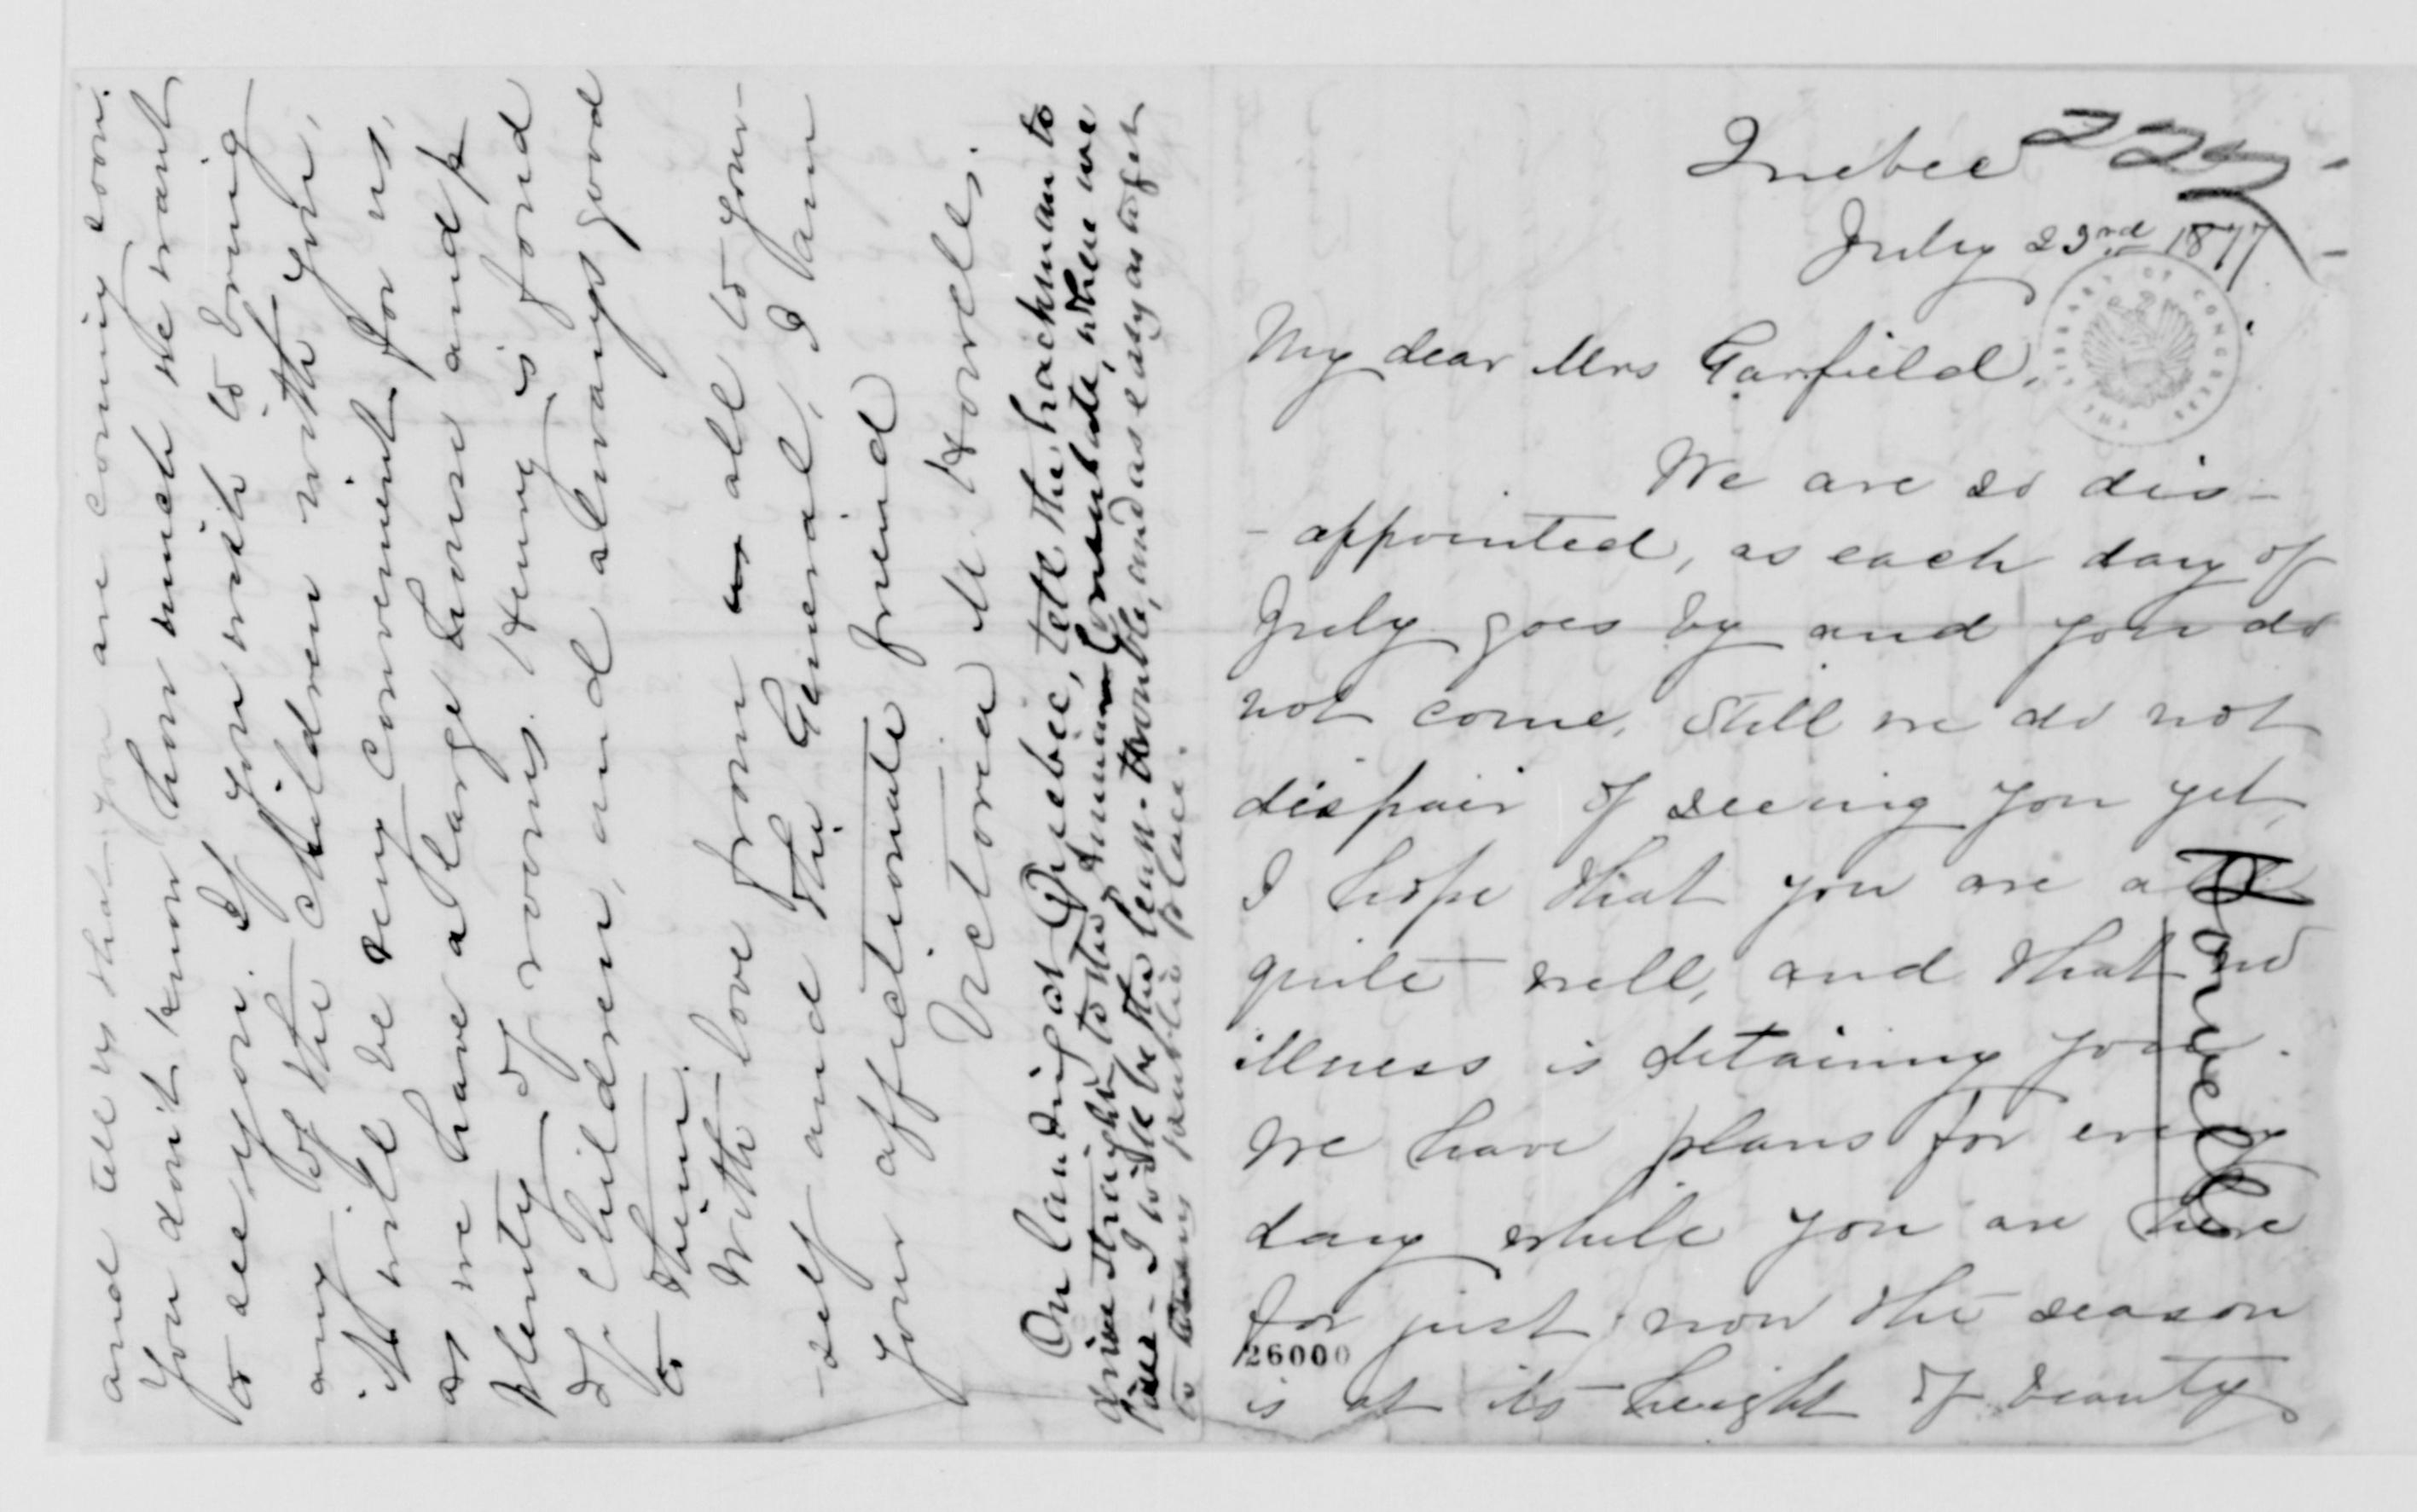 Quebec
July 23rd 1877
My dear Mrs Garfield,
We are so dis-
-appointed, as each day of
July goes by and you do
not come. Still we do not
dispair of seeing you yet,
I hope that you are all
quite well, and that no
illness is detaining you.
We have plans for every
day while you are here
for just now the season
is at its height of beauty
26000
Howells
THE LIBRARY OF CONGRESS
and tell us that you are coming soon.
You don't know how much we want
to see you. If you wish to bring
any of the children with you,
it will be very convenient for us,
as we have a large house and
plenty of rooms. Henny is fond
of children, and always good
to them.
With love from us all to your-
-self and the General, I am
your affectionate friend
Victoria M. Howells.
On landing at Quebec, tell the hackman to
drive straight to the Consulate, where we
will be the and as easy as to get
to public place.